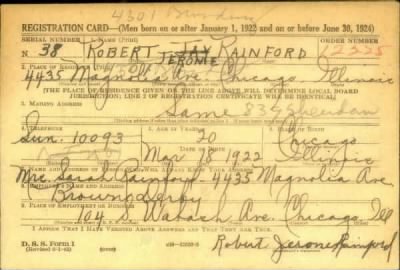 4301
REGISTRATION CARD—(Men born on or after January 1, 1922 and on or before June 30, 1924)
SERIAL NUMBER 1. NAME (Print) ORDER NUMBER
N 38 ROBERT JAY RAINFORD
JEROME
2. PLACE OF RESIDENCE (Print)
4435 Magnolia Ave. Chicago, Illinois
[THE PLACE OF RESIDENCE GIVEN ON THE LINE ABOVE WILL DETERMINE LOCAL BOARD
JURISDICTION; LINE 2 OF REGISTRATION CERTIFICATE WILL BE IDENTICAL]
3. MAILING ADDRESS
Same 836 Sheridan
4. TELEPHONE 5. AGE IN YEARS 6. PLACE OF BIRTH
Sun. 10093 20 Chicago
DATE OF BIRTH
Mar 18 1922 Illinois
Mrs. Sarah Rainford 4435 Magnolia Ave
EMPLOYER'S NAME AND ADDRESS
Brown Derby
PLACE OF EMPLOYMENT OR BUSINESS
104 S. Wabash Ave. Chicago, Ill
I AFFIRM THAT I HAVE VERIFIED ABOVE ANSWERS AND THAT THEY ARE TRUE.
D. S. S. Form 1
Robert Jerome Rainford